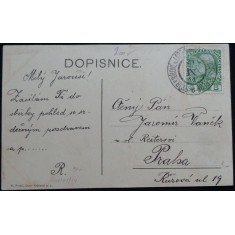 DOPISNICE.
Milý Jarouši!
Zasílám Ti do
sbírky pohled se sr-
dečným pozdravem
a p......
R.
Ctěný Pán
Jaromír Vaněk
Praha
Karova ul 19